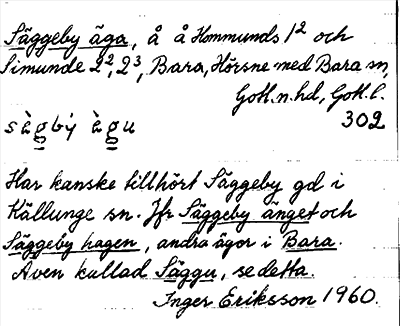 Säggeby äga, å å Hommunds 1² och
Simunde 2², 2³, Bara, Hörsne med Bara sn,
Gotl. n. hd, Gotl. l.
302
sàgbý àgu
Har kanske tillhört Säggeby gd i
Källunge sn. Jfr Säggeby änget och
Säggeby hagen, andra ägor i Bara.
Även kallad Säggu, se detta.
Inger Eriksson 1960.